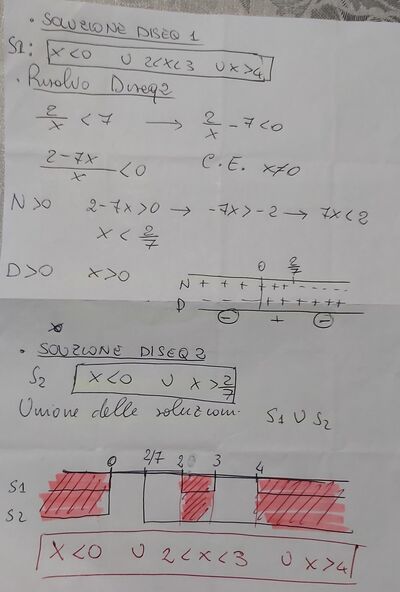 • SOLUZIONE DISEQ 1
S1: X<0 ∪ 2<x<3 ∪ x>4
• Risolvo Diseq 2
2/x < 7 → 2/x - 7 < 0
(2-7x)/x < 0 C.E. x≠0
N>0 2-7x>0 → -7x>-2 → 7x<2
x < 2/7
D>0 x>0
0 2/7
N + + + + + + - - - -
D - - - + + + + + + +
- + -
• SOUZIONE DISEQ 2
S2 X<0 ∪ x>2/7
Unione delle soluzioni S1 ∪ S2
0 2/7 2 3 4
S1
S2
X<0 ∪ 2<x<3 ∪ x>4